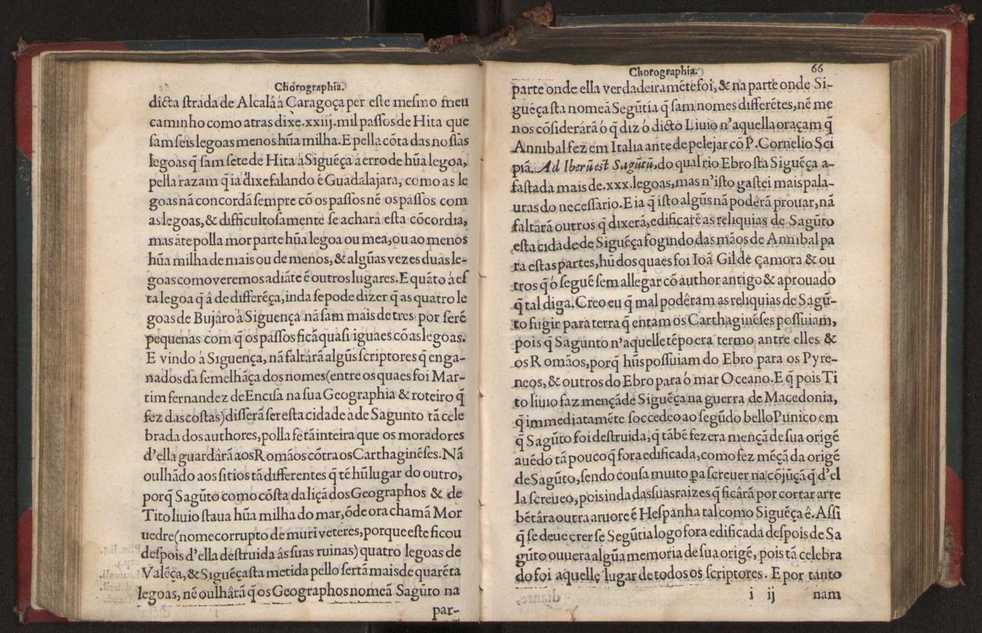 Chorographia.
dicta strada de Alcalâ à Caragoça per este mesmo meu
caminho como atras dixe.xxiij.mil passos de Hita que
sam seis legoas menos hũa milha. E pella cõta das nossas
legoas q̃ sam sete de Hita à Siguẽça á erro de hũa legoa,
pella razam q̃ ia dixe falando ẽ Guadalajara, como as le
goas nã concordã sempre cõ os passos nẽ os passos com
as legoas, & difficultosamente se achará esta cõcordia,
mas ãte polla mor parte hũa legoa ou mea, ou ao menos
hũa milha de mais ou de menos, & algũas vezes duas le-
goas como veremos adiãte ẽ outros lugares. E quãto á es
ta legoa q̃ â de differẽça, inda se pode dizer q̃ as quatro le
goas de Bujâro à Siguença nã sam mais de tres por serẽ
pequenas com q̃ os passos ficã quasi iguaes cõ as legoas.
E vindo á Siguença, nã faltarã algũs scriptores q̃ enga-
nados da semelhãça dos nomes (entre os quaes foi Mar-
tim fernandez de Encisa na sua Geographia & roteiro q̃
fez das costas) disserã ser esta cidade â de Sagunto tã cele
brada dos authores, polla fe tã inteira que os moradores
d'ella guardârã aos Romãos cõtra os Carthaginẽses. Nã
oulhãdo aos sitios tã differentes q̃ tẽ hũ lugar do outro,
porq̃ Sagũto como cõsta da liçã dos Geographos & de
Tito liuio staua hũa milha do mar, õde ora chamã Mor
uedre (nome corrupto de muri veteres, porque este ficou
despois d'ella destruida ás suas ruinas) quatro legoas de
Valẽça, & Siguẽça sta metida pello sertã mais de quarẽta
legoas, nẽ oulhârã q̃ os Geographos nomeã Sagũto na
par-
Chorographia. 66
parte onde ella verdadeiramẽte foi, & na parte onde Si-
guẽça sta nomeã Segũtia q̃ sam nomes differẽtes, nẽ me
nos cõsiderârã ó q̃ diz ó dicto Liuio n'aquella oraçam q̃
Annibal fez em Italia ante de pelejar cõ P. Cornelio Sci
piã. Ad Iberũ est Sagũtũ, do qual rio Ebro sta Siguẽça a-
fastada mais de .xxx. legoas, mas n'isto gastei mais pala-
uras do necessario. E ia q̃ isto algũs nã poderã prouar, nã
faltârã outros q̃ dixerã, edificarẽ as reliquias de Sagũto
esta cidade de Siguẽça fogindo das mãos de Annibal pa
ra estas partes, hũ dos quaes foi Ioã Gil de çamora & ou
tros q̃ ó seguẽ sem allegar cõ author antigo & aprouado
q̃ tal diga. Creo eu q̃ mal podêram as reliquias de Sagũ-
to fugir para terra q̃ entam os Carthaginẽses possuiam,
pois q̃ Sagunto n'aquelle tẽpo era termo antre elles &
os Romãos, porq̃ hũs possuiam do Ebro para os Pyre-
neos, & outros do Ebro para ó mar Oceano. E q̃ pois Ti
to liuio faz mençã de Siguẽça na guerra de Macedonia,
q̃ immediatamẽte soccedeo ao segũdo bello Punico em
q̃ Sagũto foi destruida; q̃ tãbẽ fezera mençã de sua origẽ
auẽdo tã pouco q̃ fora edificada, como fez mẽçã da origẽ
de Sagũto, sendo cousa muito pa screuer na cõjũçã q̃ d'el
la screueo, pois inda das suas raizes q̃ ficarã por cortar arre
bẽtára outra aruore ẽ Hespanha tal como Siguẽça ê. Assi
q̃ se deue crer se Segũtia logo fora edificada despois de Sa
gũto ouuera algũa memoria de sua origẽ, pois tã celebra
do foi aquelle lugar de todos os scriptores. E por tanto
i ij nam